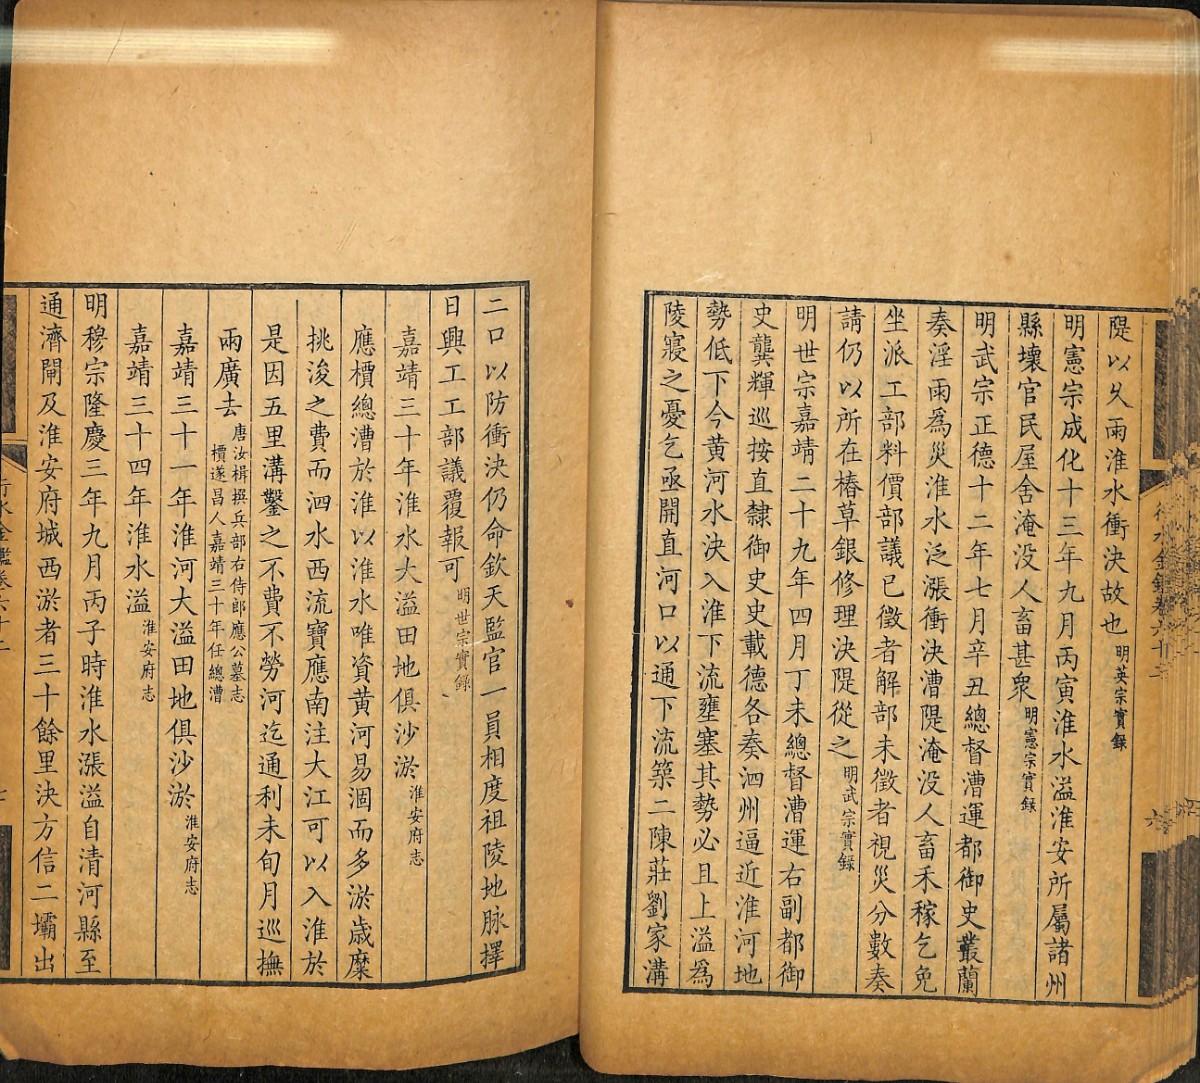 隄以久雨淮水衝決故也明英宗實錄
明憲宗成化十三年九月丙寅淮水溢淮安所屬諸州
縣壞官民屋舍淹没人畜甚衆明憲宗實錄
明武宗正德十二年七月辛丑總督漕運都御史叢蘭
奏淫雨爲災淮水泛漲衝決漕隄淹没人畜禾稼乞免
坐派工部料價部議已徵者解部未徵者視災分數奏
請仍以所在樁草銀修理決隄從之明武宗實錄
明世宗嘉靖二十九年四月丁未總督漕運右副都御
史龔輝巡按直隸御史史載德各奏泗州逼近淮河地
勢低下今黄河水決入淮下流壅塞其勢必且上溢爲
陵寢之憂乞亟開直河口以通下流築二陳莊劉家溝
二口以防衝決仍命欽天監官一員相度祖陵地脉擇
日興工工部議覆報可明世宗實錄
嘉靖三十年淮水大溢田地俱沙淤淮安府志
應檟總漕於淮以淮水唯資黄河易涸而多淤歳糜
挑浚之費而泗水西流寶應南注大江可以入淮於
是因五里溝鑿之不費不勞河迄通利未旬月巡撫
兩廣去唐汝楫撰兵部右侍郎應公墓志
檟遂昌人嘉靖三十年任總漕
嘉靖三十一年淮河大溢田地俱沙淤淮安府志
嘉靖三十四年淮水溢淮安府志
明穆宗隆慶三年九月丙子時淮水漲溢自清河縣至
通濟閘及淮安府城西淤者三十餘里決方信二壩出
行水金鑑卷六十二